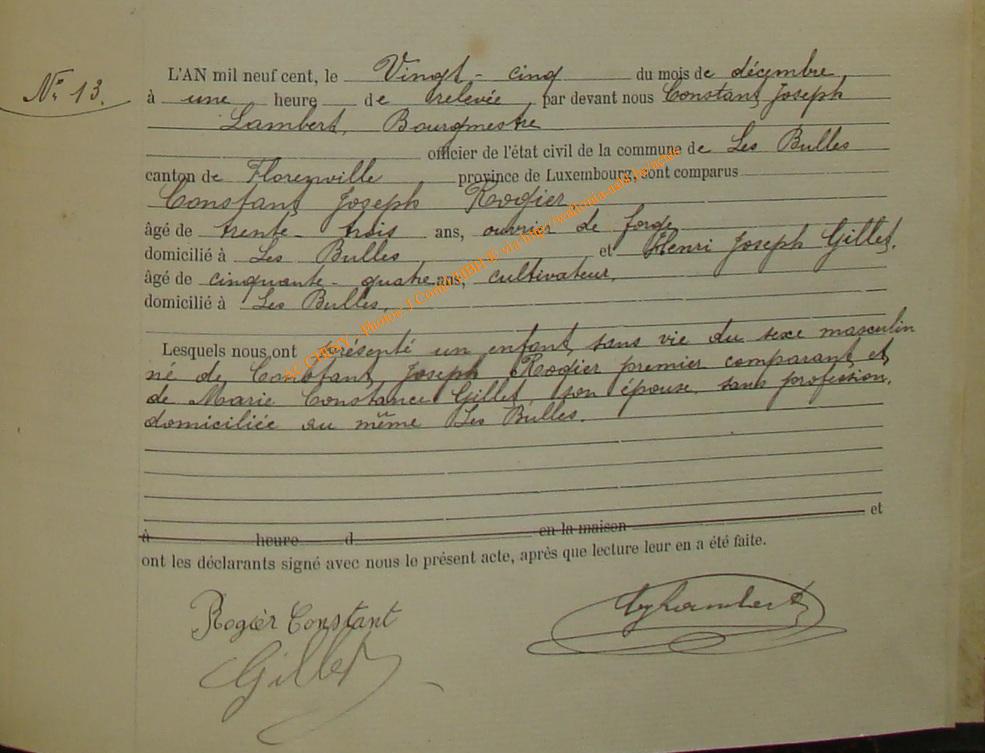 Nº 13.
L'AN mil neuf cent, le Vingt-cinq du mois de décembre,
à une heure de relevée, par devant nous Constant Joseph
Lambert, Bourgmestre
officier de l'état civil de la commune de Les Bulles
canton de Florenville province de Luxembourg, sont comparus
Constant Joseph Rogier,
âgé de trente-trois ans, ouvrier de forge
domicilié à Les Bulles, et Henri Joseph Gillet,
âgé de cinquante-quatre ans, cultivateur,
domicilié à Les Bulles,
Lesquels nous ont présenté un enfant sans vie du sexe masculin
né de Constant Joseph Rogier premier comparant et
de Marie Constance Gillet, son épouse, sans profession,
domiciliée au même Les Bulles.
à heure d en la maison et
ont les déclarants signé avec nous le présent acte, après que lecture leur en a été faite.
Rogier Constant
Lambert
Gillet